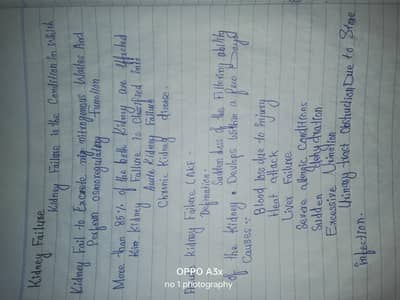 Kidney Failure
Kidney Failure is the Condition in which
Kidney Fail to Excrete only nitrogenous Wastes And
Perform osmoregulatory Function
More than 85% of the both Kidney are effected
Kidney Failure is Classified into
Acute Kidney Failure
Chronic Kidney disease.
Kidney Failure
Defination:
Suddden loss of the Filtering ability
of the Kidney Develops Within a few Days
Causes:
Blood loss due to injury
Heat attack
Liver Failure
Severe allergic Conditions
Sudden dehydration
Excessive Urination
Urinary tract obstruction Due to Stone
infection.
OPPO A3x
no 1 photography